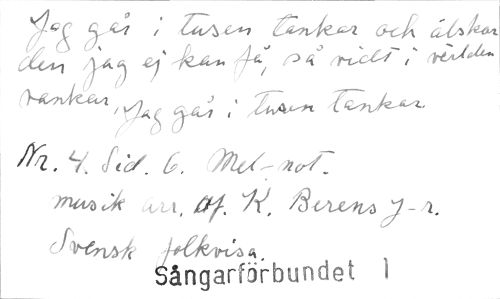 Jag går i tusen tankar och älskar
den jag ej kan få, så vidt i världen
vankar, Jag går i tusen tankar
Nr. 4. Sid. 6. Mel-not.
musik arr. af. K. Berens J-r.
Svensk folkvisa.
Sångarförbundet 1